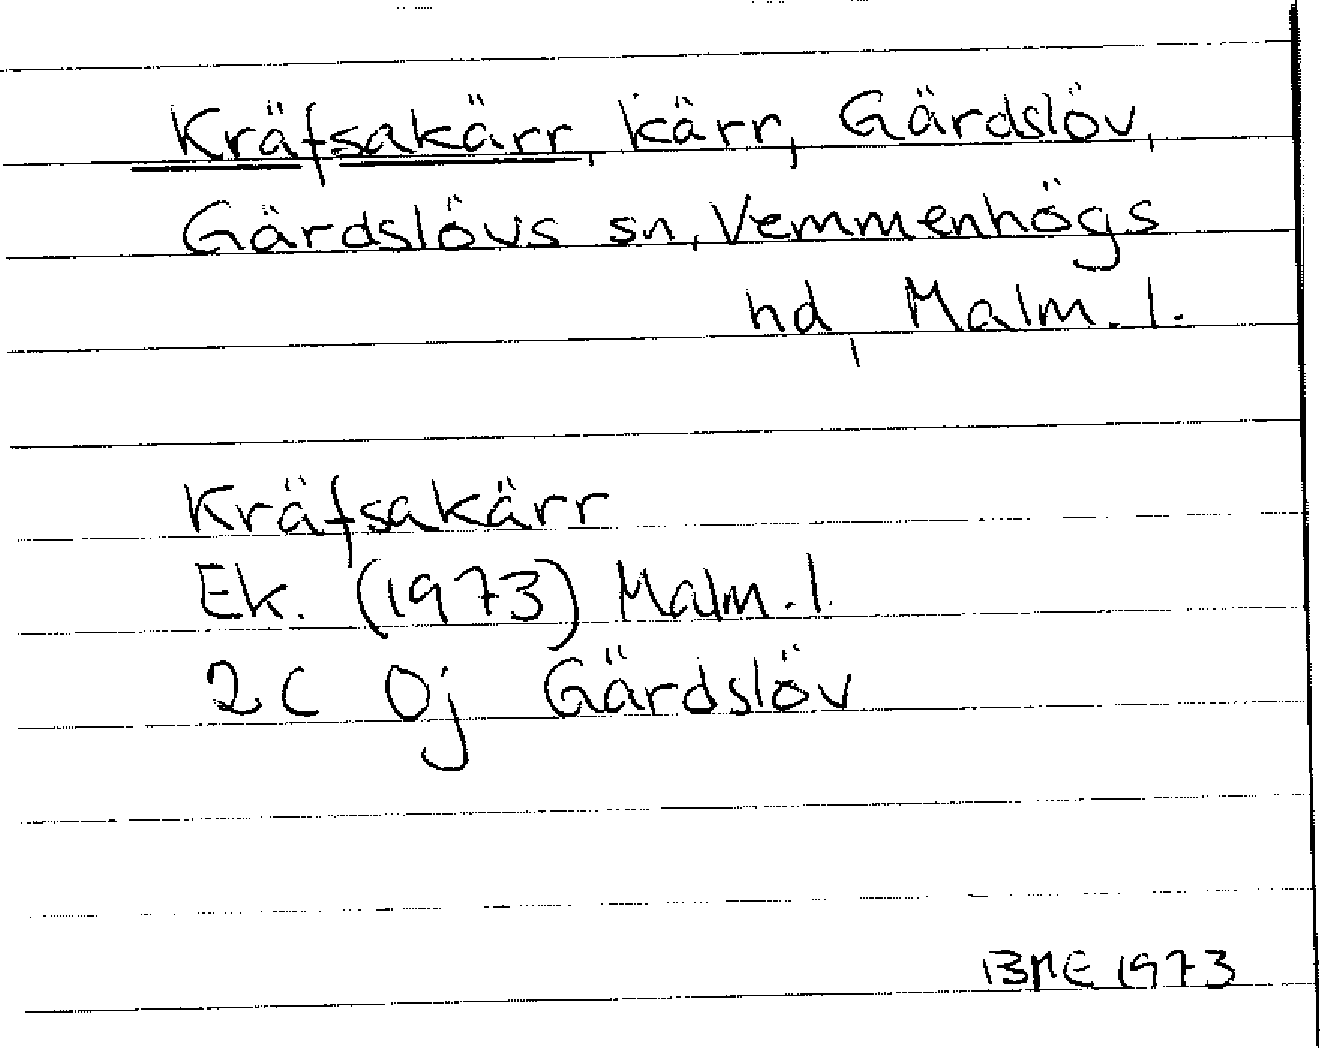 Kräfsakärr, kärr, Gärdslöv,
Gärdslövs sn, Vemmenhögs
hd, Malm. l.
Kräfsakärr
Ek. (1973) Malm. l.
2C 0j Gärdslöv
BME 1973